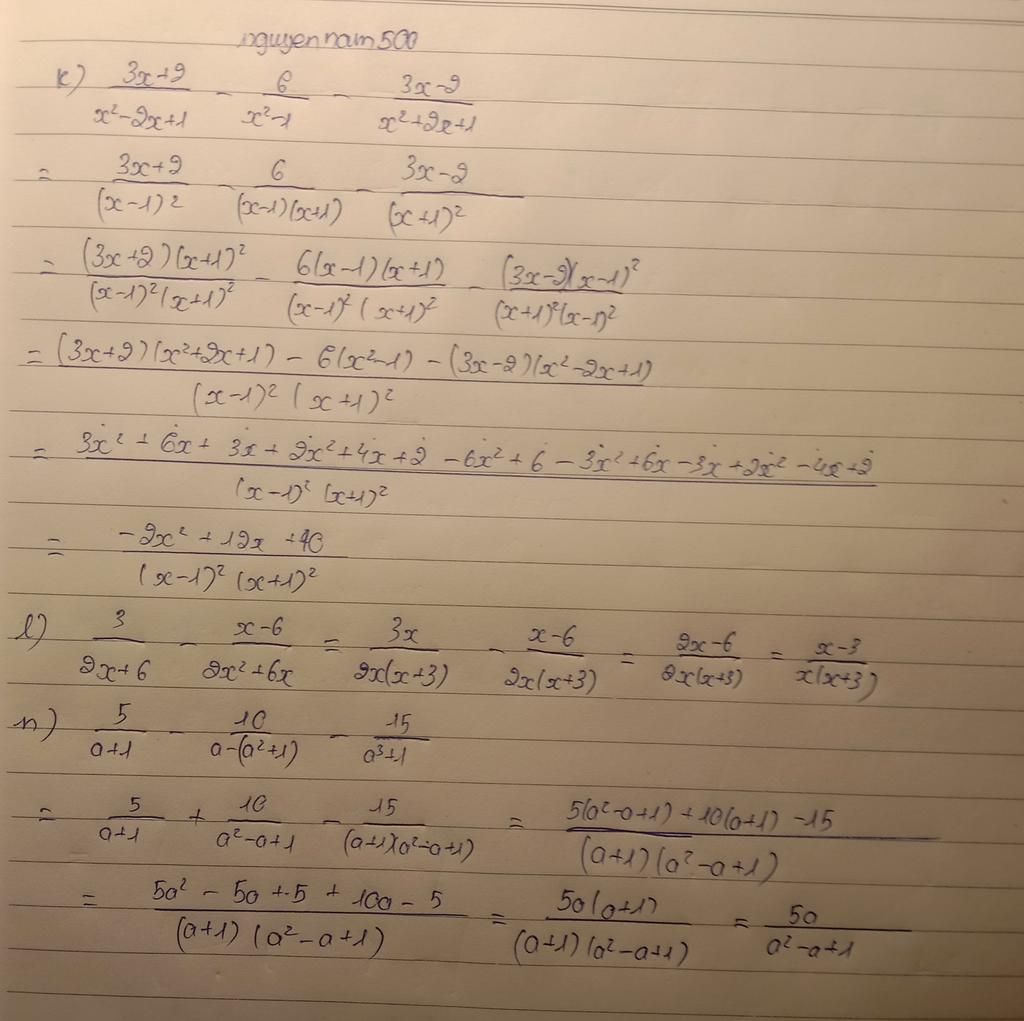 nguyennam500
k) (3x+2)/(x²-2x+1) - 6/(x²-1) - (3x-2)/(x²+2x+1)
= (3x+2)/(x-1)² - 6/((x-1)(x+1)) - (3x-2)/(x+1)²
= ((3x+2)(x+1)²)/((x-1)²(x+1)²) - (6(x-1)(x+1))/((x-1)²(x+1)²) - ((3x-2)(x-1)²)/((x+1)²(x-1)²)
= ((3x+2)(x²+2x+1) - 6(x²-1) - (3x-2)(x²-2x+1))/((x-1)²(x+1)²)
= (3x² + 6x + 3x + 2x² + 4x + 2 - 6x² + 6 - 3x² + 6x - 3x + 2x² - 4x + 2)/((x-1)²(x+1)²)
= (-2x² + 12x + 10)/((x-1)²(x+1)²)
l) 3/(2x+6) - (x-6)/(2x²+6x) = 3x/(2x(x+3)) - (x-6)/(2x(x+3)) = (2x-6)/(2x(x+3)) = (x-3)/(x(x+3))
n) 5/(a+1) - 10/(a-(a²+1)) - 15/(a³+1)
= 5/(a+1) + 10/(a²-a+1) - 15/((a+1)(a²-a+1)) = (5(a²-a+1) + 10(a+1) - 15)/((a+1)(a²-a+1))
= (5a² - 5a + 5 + 10a - 5)/((a+1)(a²-a+1)) = (5a(a+1))/((a+1)(a²-a+1)) = 5a/(a²-a+1)